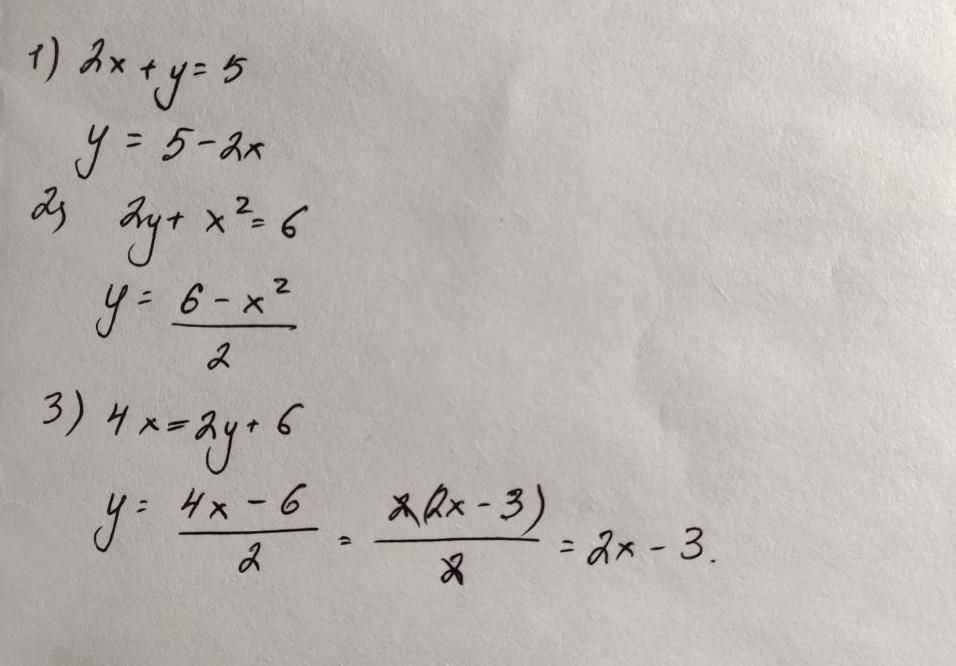 1) 2x + y = 5
y = 5 - 2x
2) 2y + x² = 6
y = (6 - x²)/2
3) 4x = 2y + 6
y = (4x - 6)/2 = 2(2x - 3)/2 = 2x - 3.